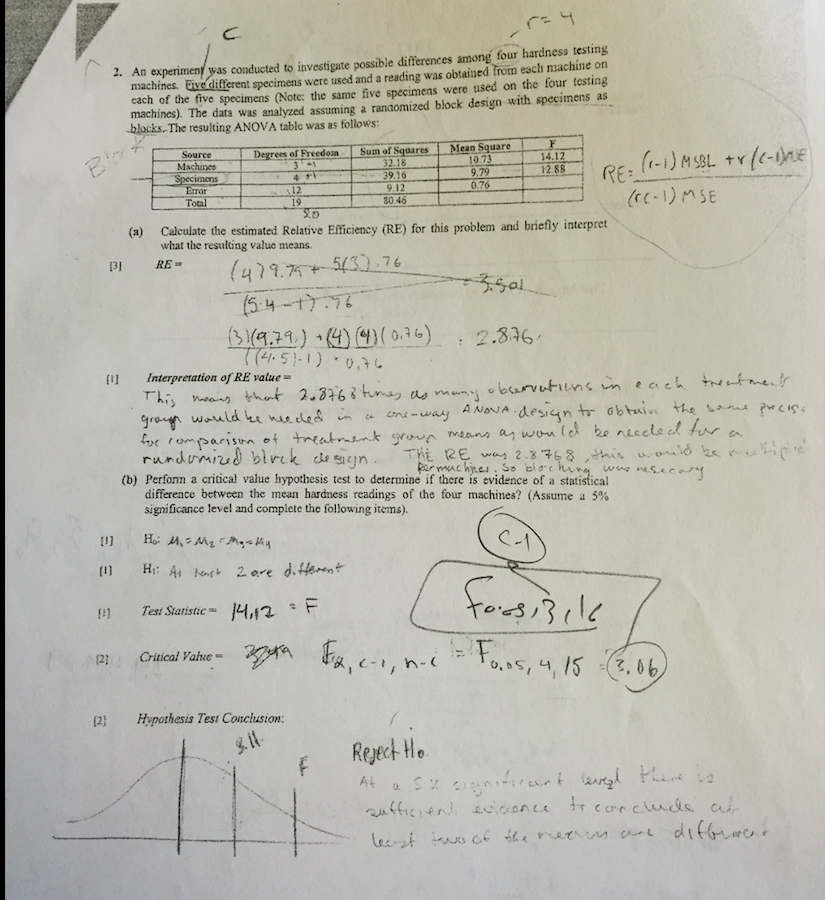 C
r = 4
2. An experiment was conducted to investigate possible differences among four hardness testing
machines. Five different specimens were used and a reading was obtained from each machine on
each of the five specimens (Note: the same five specimens were used on the four testing
machines). The data was analyzed assuming a randomized block design with specimens as
blocks. The resulting ANOVA table was as follows:
Block
Source Degrees of Freedom Sum of Squares Mean Square F
Machines 3 -1 32.18 10.73 14.12
Specimens 4 r-1 39.16 9.79 12.88
Error 12 9.12 0.76
Total 19 80.46
20
RE = (r-1) MSBL + r(c-1)MSE
(rc-1) MSE
(a) Calculate the estimated Relative Efficiency (RE) for this problem and briefly interpret
what the resulting value means.
[3] RE =
(4)9.79 + 5(3).76
(5·4-1).76
= 3.501
(3)(9.79) + (4)(4)(0.76) = 2.876
((4·5)-1) · 0.76
[1] Interpretation of RE value =
This means that 2.8768 times as many observations in each treatment
group would be needed in a one-way ANOVA design to obtain the same precise
for comparison of treatment group means as would be needed for a
randomized block design. THE RE was 2.8768, this would be
per machines. So blocking was nesecary
(b) Perform a critical value hypothesis test to determine if there is evidence of a statistical
difference between the mean hardness readings of the four machines? (Assume a 5%
significance level and complete the following items).
[1] H₀: M₁ = M₂ = M₃ = M₄
[1] H₁: At least 2 are different
[1] Test Statistic = 14.12 = F
C-1
F0.05,3,16
[2] Critical Value = Fα, c-1, n-c = F0.05, 4, 15 = 3.06
[2] Hypothesis Test Conclusion:
3.11
F
Reject Ho.
At a 5% significant level there is
sufficient evidence to conclude at
least two of the means are different